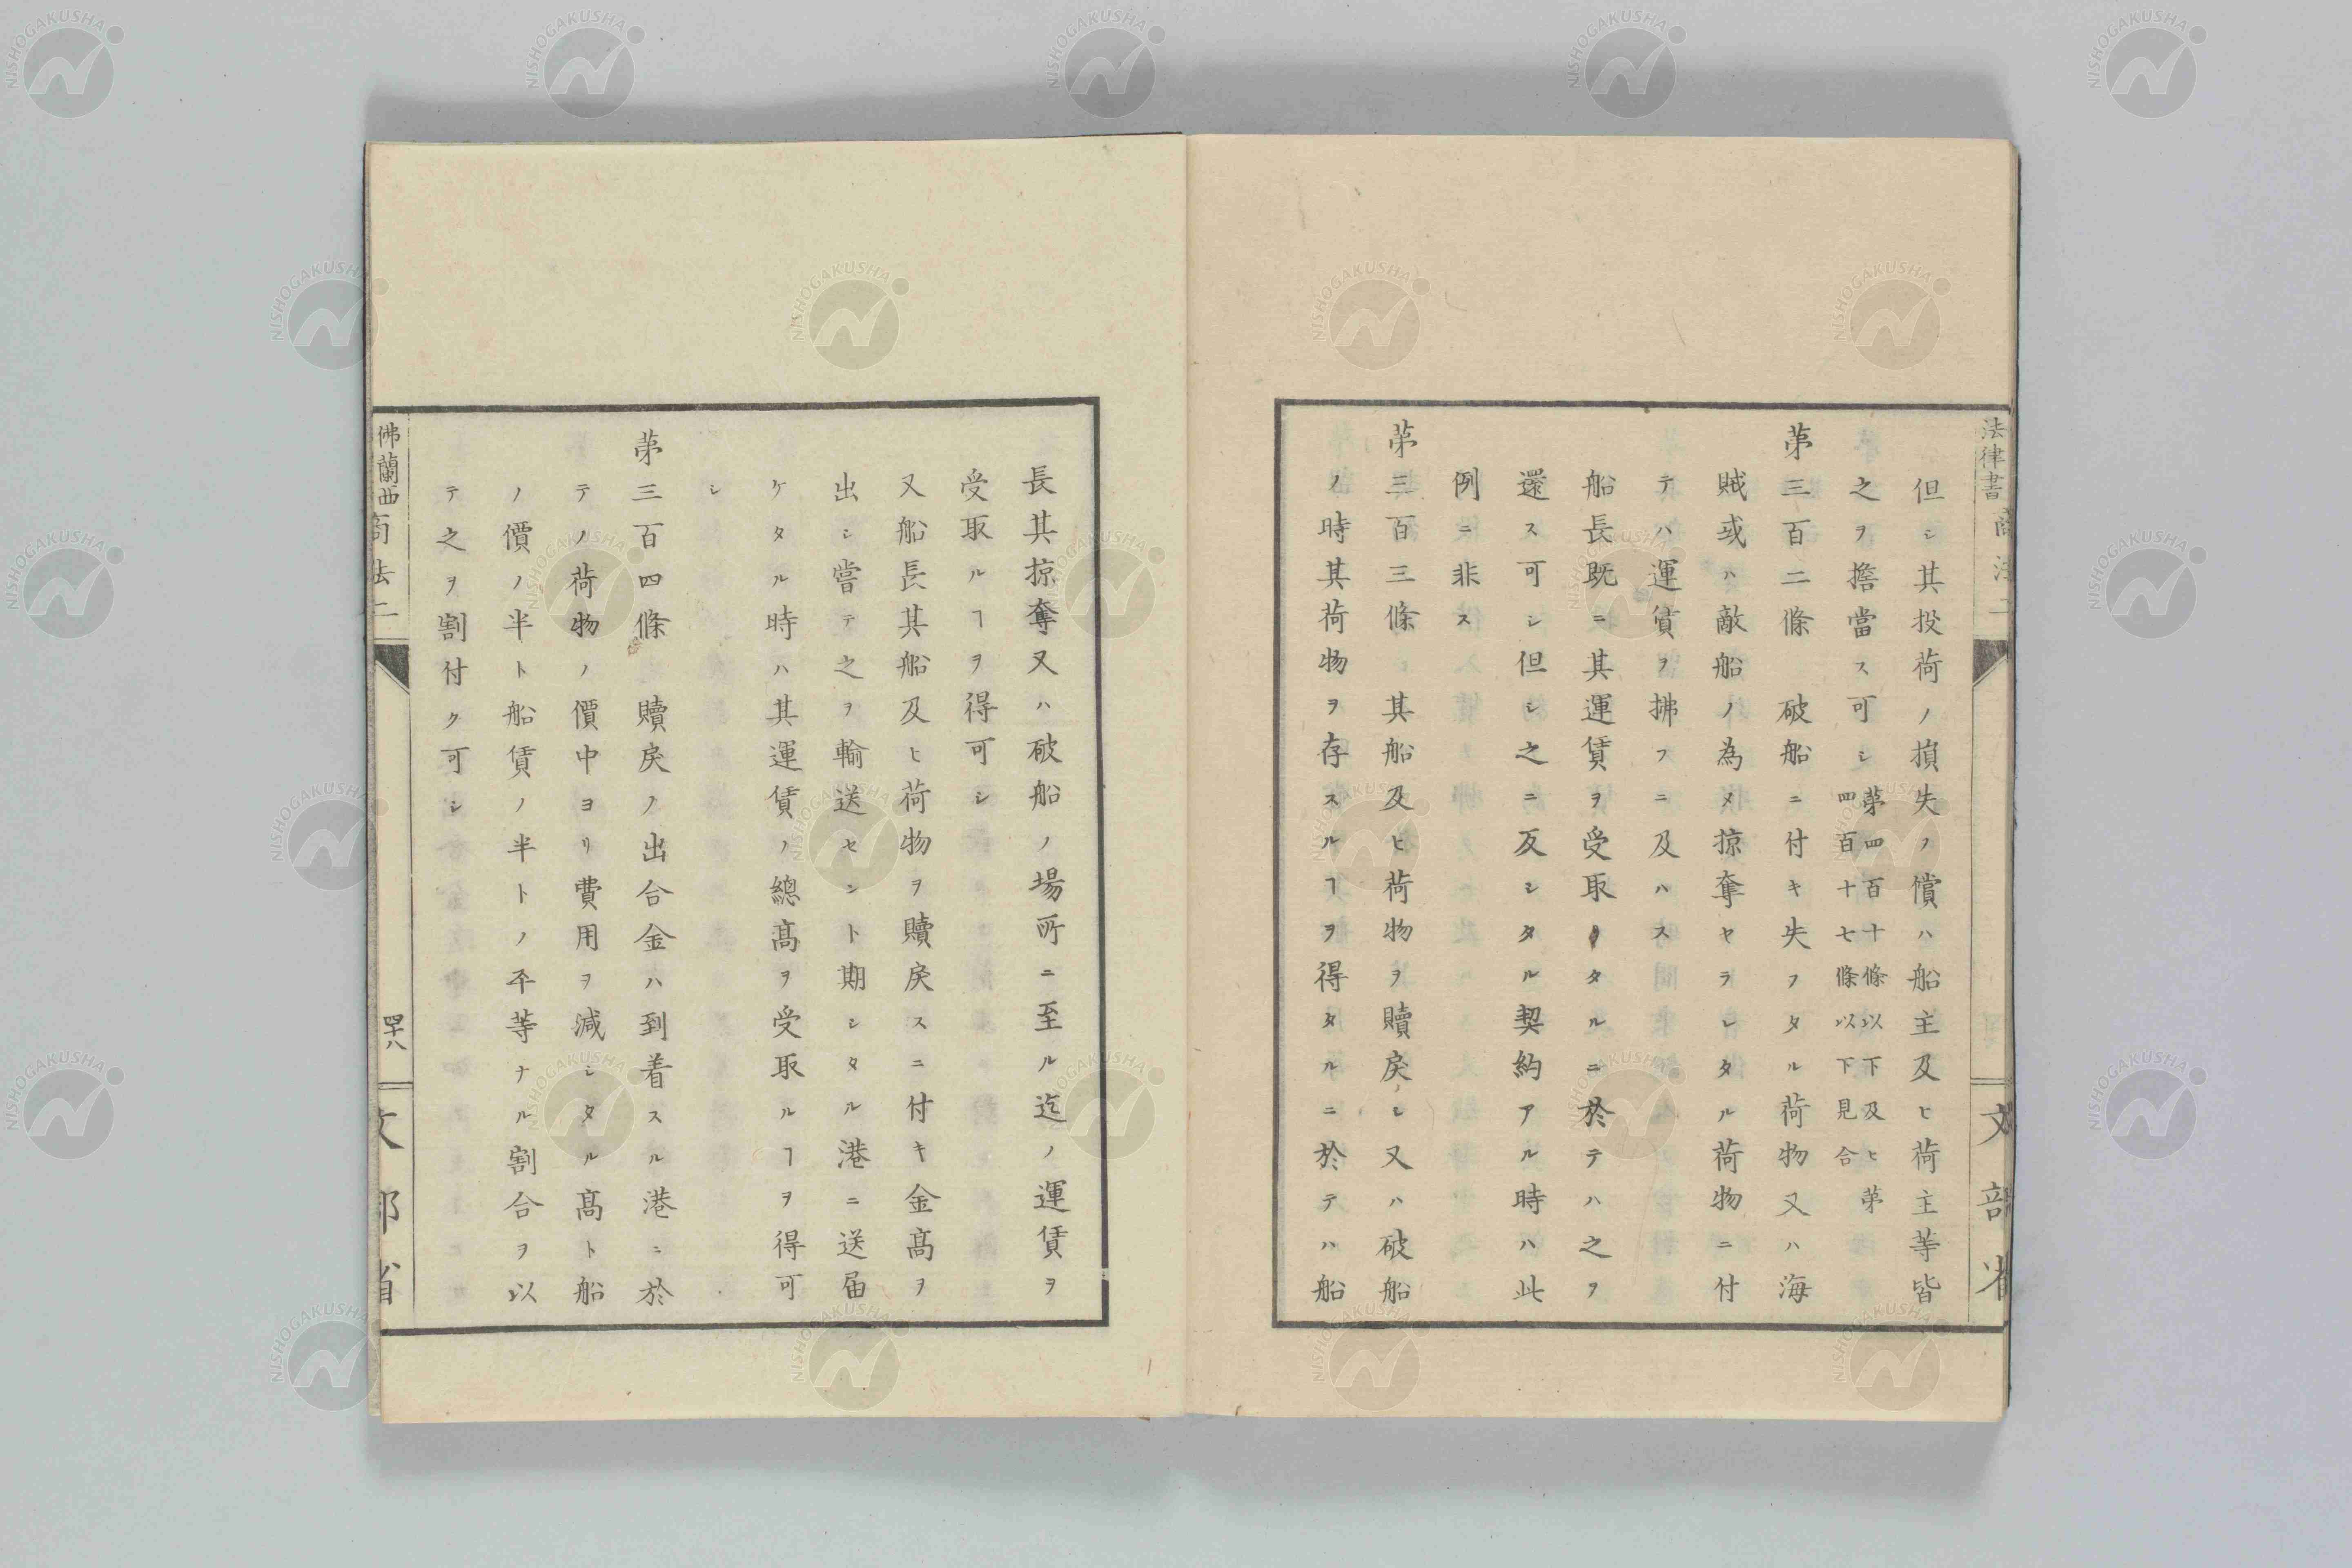 法律書 商法二
文部省
但シ其投荷ノ損失ノ償ハ船主及ヒ荷主等皆
之ヲ擔當ス可シ 第四百十條以下及ヒ第
四百十七條以下見合
第三百二條 破船ニ付キ失フタル荷物又ハ海
賊或ハ敵船ノ為メ掠奪ヤラレタル荷物ニ付
テハ運賃ヲ拂フニ及ハス
船長既ニ其運賃ヲ受取リタルニ於テハ之ヲ
還ス可シ但シ之ニ反シタル契約アル時ハ此
例ニ非ス
第三百三條 其船及ヒ荷物ヲ贖戻シ又ハ破船
ノ時其荷物ヲ存スルヿヲ得タルニ於テハ船
長其掠奪又ハ破船ノ場所ニ至ル迄ノ運賃ヲ
受取ルヿヲ得可シ
又船長其船及ヒ荷物ヲ贖戻スニ付キ金高ヲ
出シ嘗テ之ヲ輸送セント期シタル港ニ送届
ケタル時ハ其運賃ノ總高ヲ受取ルヿヲ得可
シ
第三百四條 贖戻ノ出合金ハ到着スル港ニ於
テノ荷物ノ價中ヨリ費用ヲ減シタル高ト船
ノ價ノ半ト船賃ノ半トノ平等ナル割合ヲ以
テ之ヲ割付ク可シ
佛蘭西商法二
四十八
文部省
NISHOGAKUSHA